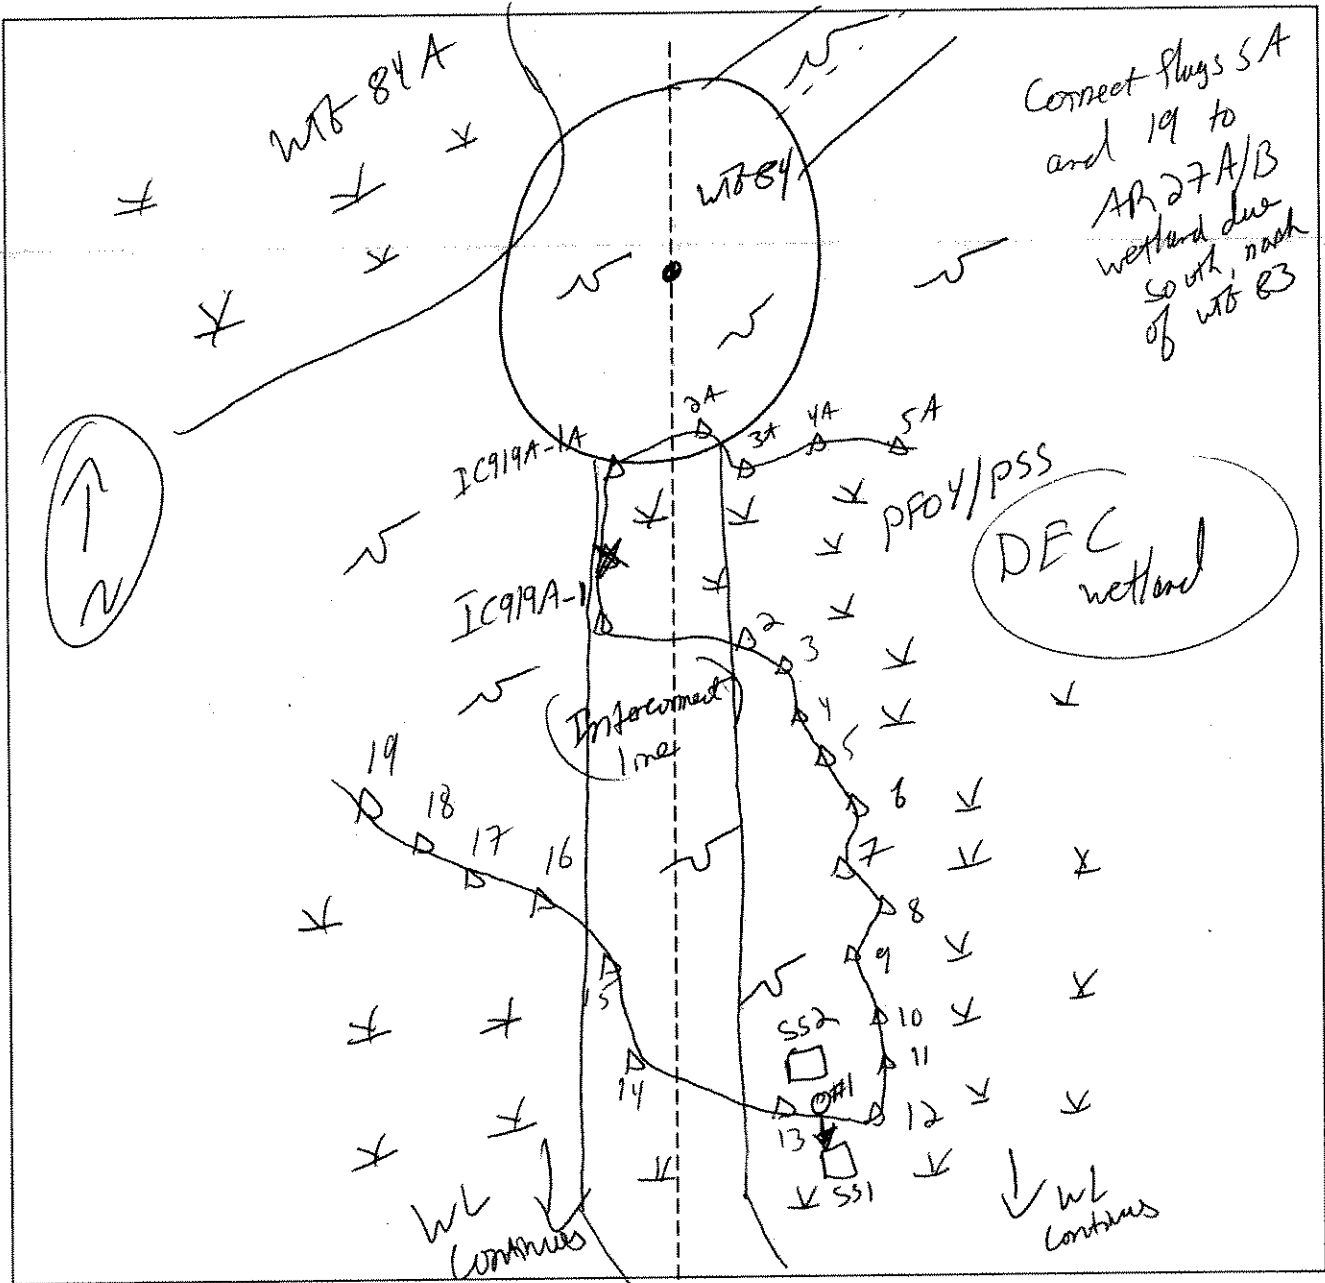 WTG 84A
WTG 84
Connect flags 5A
and 19 to
AR27A/B
wetland due
south, north
of WTG 83
IC919A-1A
2A
3A
4A
5A
PFO4/PSS
DEC
wetland
N
IC919A-1
2
3
4
5
6
7
8
9
10
11
12
13
14
15
16
17
18
19
Interconnect
line
SS2
#1
SS1
WL
continues
WL
continues